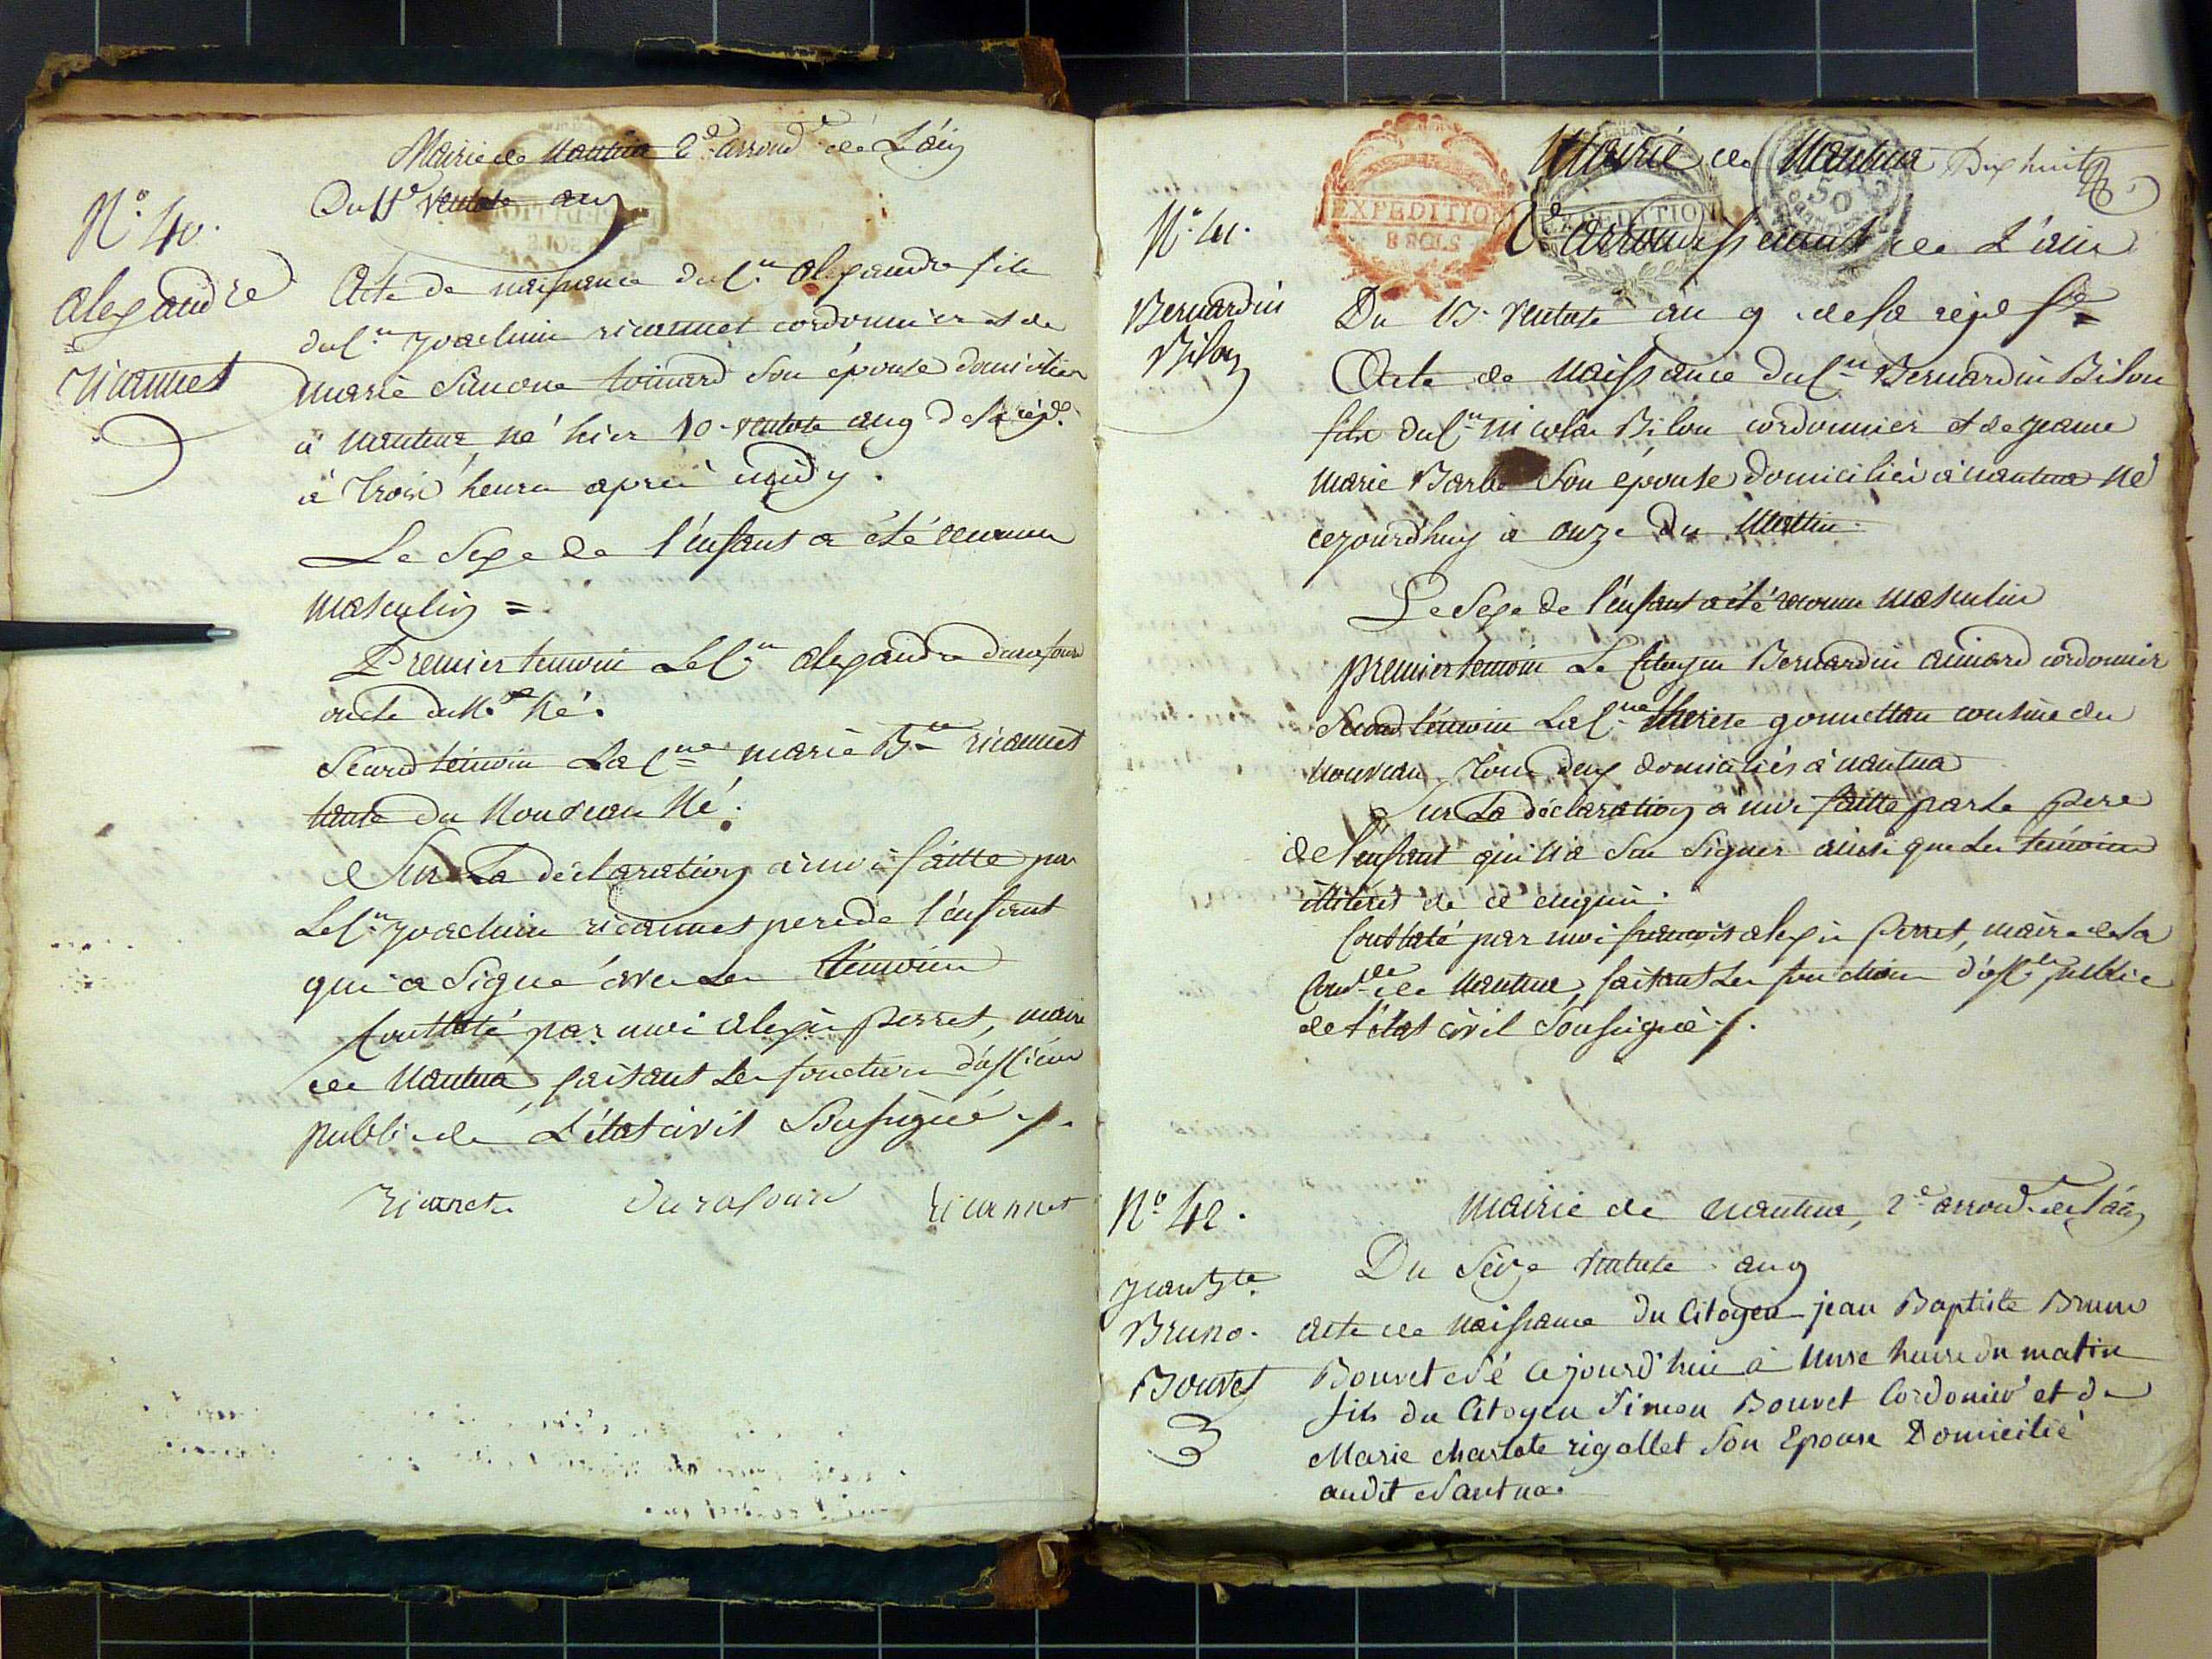 Mairie de Nantua 2e arrond.t de L'ain
Du 11e ventose an 9
N.o 40.
alexandre
ricannet
Acte de naissance du C.en alexandre fils
du C.en joachim ricannet cordonnier et de
marie Simone toinard son épouse domiciliés
à nantua, né hier 10 ventose an 9 de la rép.e
à trois heures après midy.
Le Sexe de l'enfant a été reconnu
masculin =
Premier temoin Le C.en alexandre durafour
oncle du N.au Né.
Second témoin La C.ne marie B.te ricannet
tante du Nouveau Né.
Sur La déclaration à moi faitte par
Le C.en joachim ricannet pere de l'enfant
qui a Signé avec Les témoins
Constaté par moi alexis perret, maire
de Nantua, faisant Les fonctions d'officier
public de L'état civil Soussigné ./.
Ricanet durafour ricannet
Mairie de Nantua Dix huit
EXPEDITION
8 SOLS
EXPEDITION
50
N.o 41.
2e arrondissement de L'ain
Bernardin
Bilon
Du 13 Ventose an 9 de la rép.e f.se
Acte de Naissance du C.en Bernardin Bilon
fils du C.en nicolas Bilon cordonnier et de jeanne
marie Barbe Son épouse domiciliés à nantua né
cejourd'huy à onze du Mattin.
Le Sexe de l'enfant a été reconnu masculin
premier temoin Le Citoyen Bernardin aimard cordonnier
Second témoin La C.ne therese gonnettan cousine du
nouveau. tous deux domiciliés à nantua
Sur La déclaration a moi faitte par le pere
de l'enfant qui n'a Su Signer ainsi que Les témoins
illiterés de ce enquis.
Constaté par moi françois alexis Perret, maire de la
Com.e de Nantua, faisant Les fonctions d'off.er public
de l'état civil Soussigné ./.
N.o 42.
Mairie de nantua, 2e arrond.t de l'ain
Du Seize Ventose an 9
jean B.te
Bruno.
Bouvet
acte de Naissance du Citoyen jean Baptiste Bruno
Bouvet Né Cejourd'hui à Unse heure du matin
fils du Citoyen Simon Bouvet Cordonier et de
Marie charlote rigollet Son Epouse Domicilié
audit Nantua.